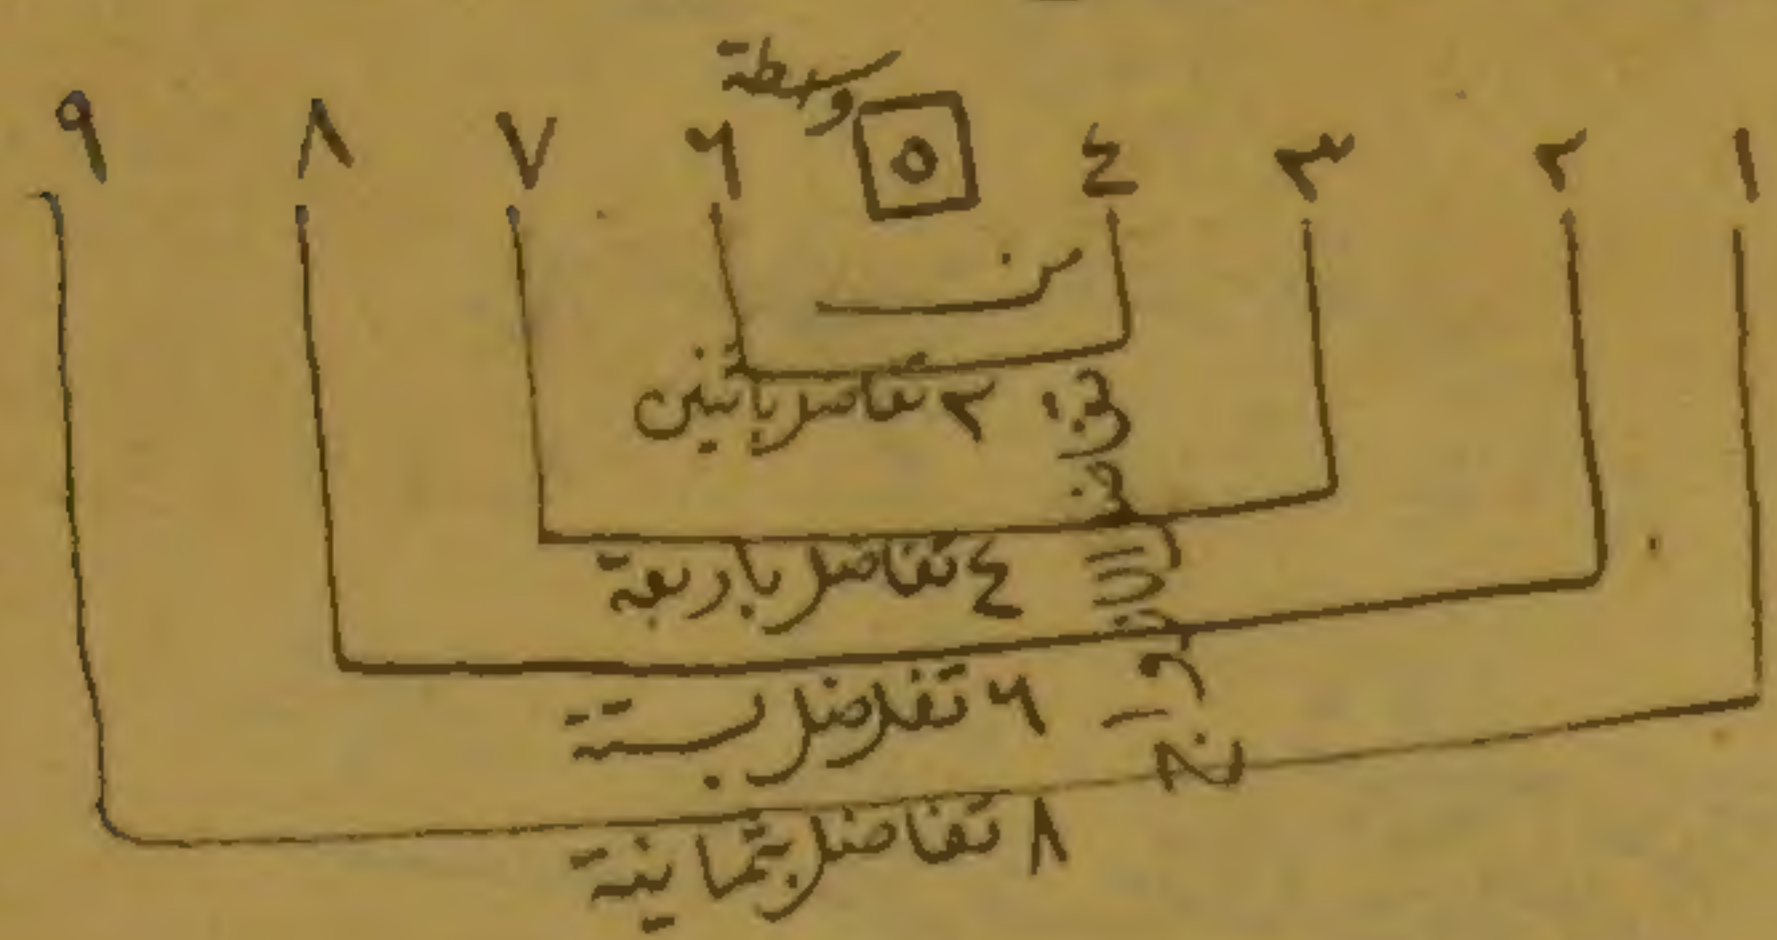 وسطة
١ ٢ ٣ ٤ ٥ ٦ ٧ ٨ ٩
من
٢ تفاضل باثنين
٤ تفاضل باربعة
٦ تفاضل بستة
٨ تفاضل بثمانية